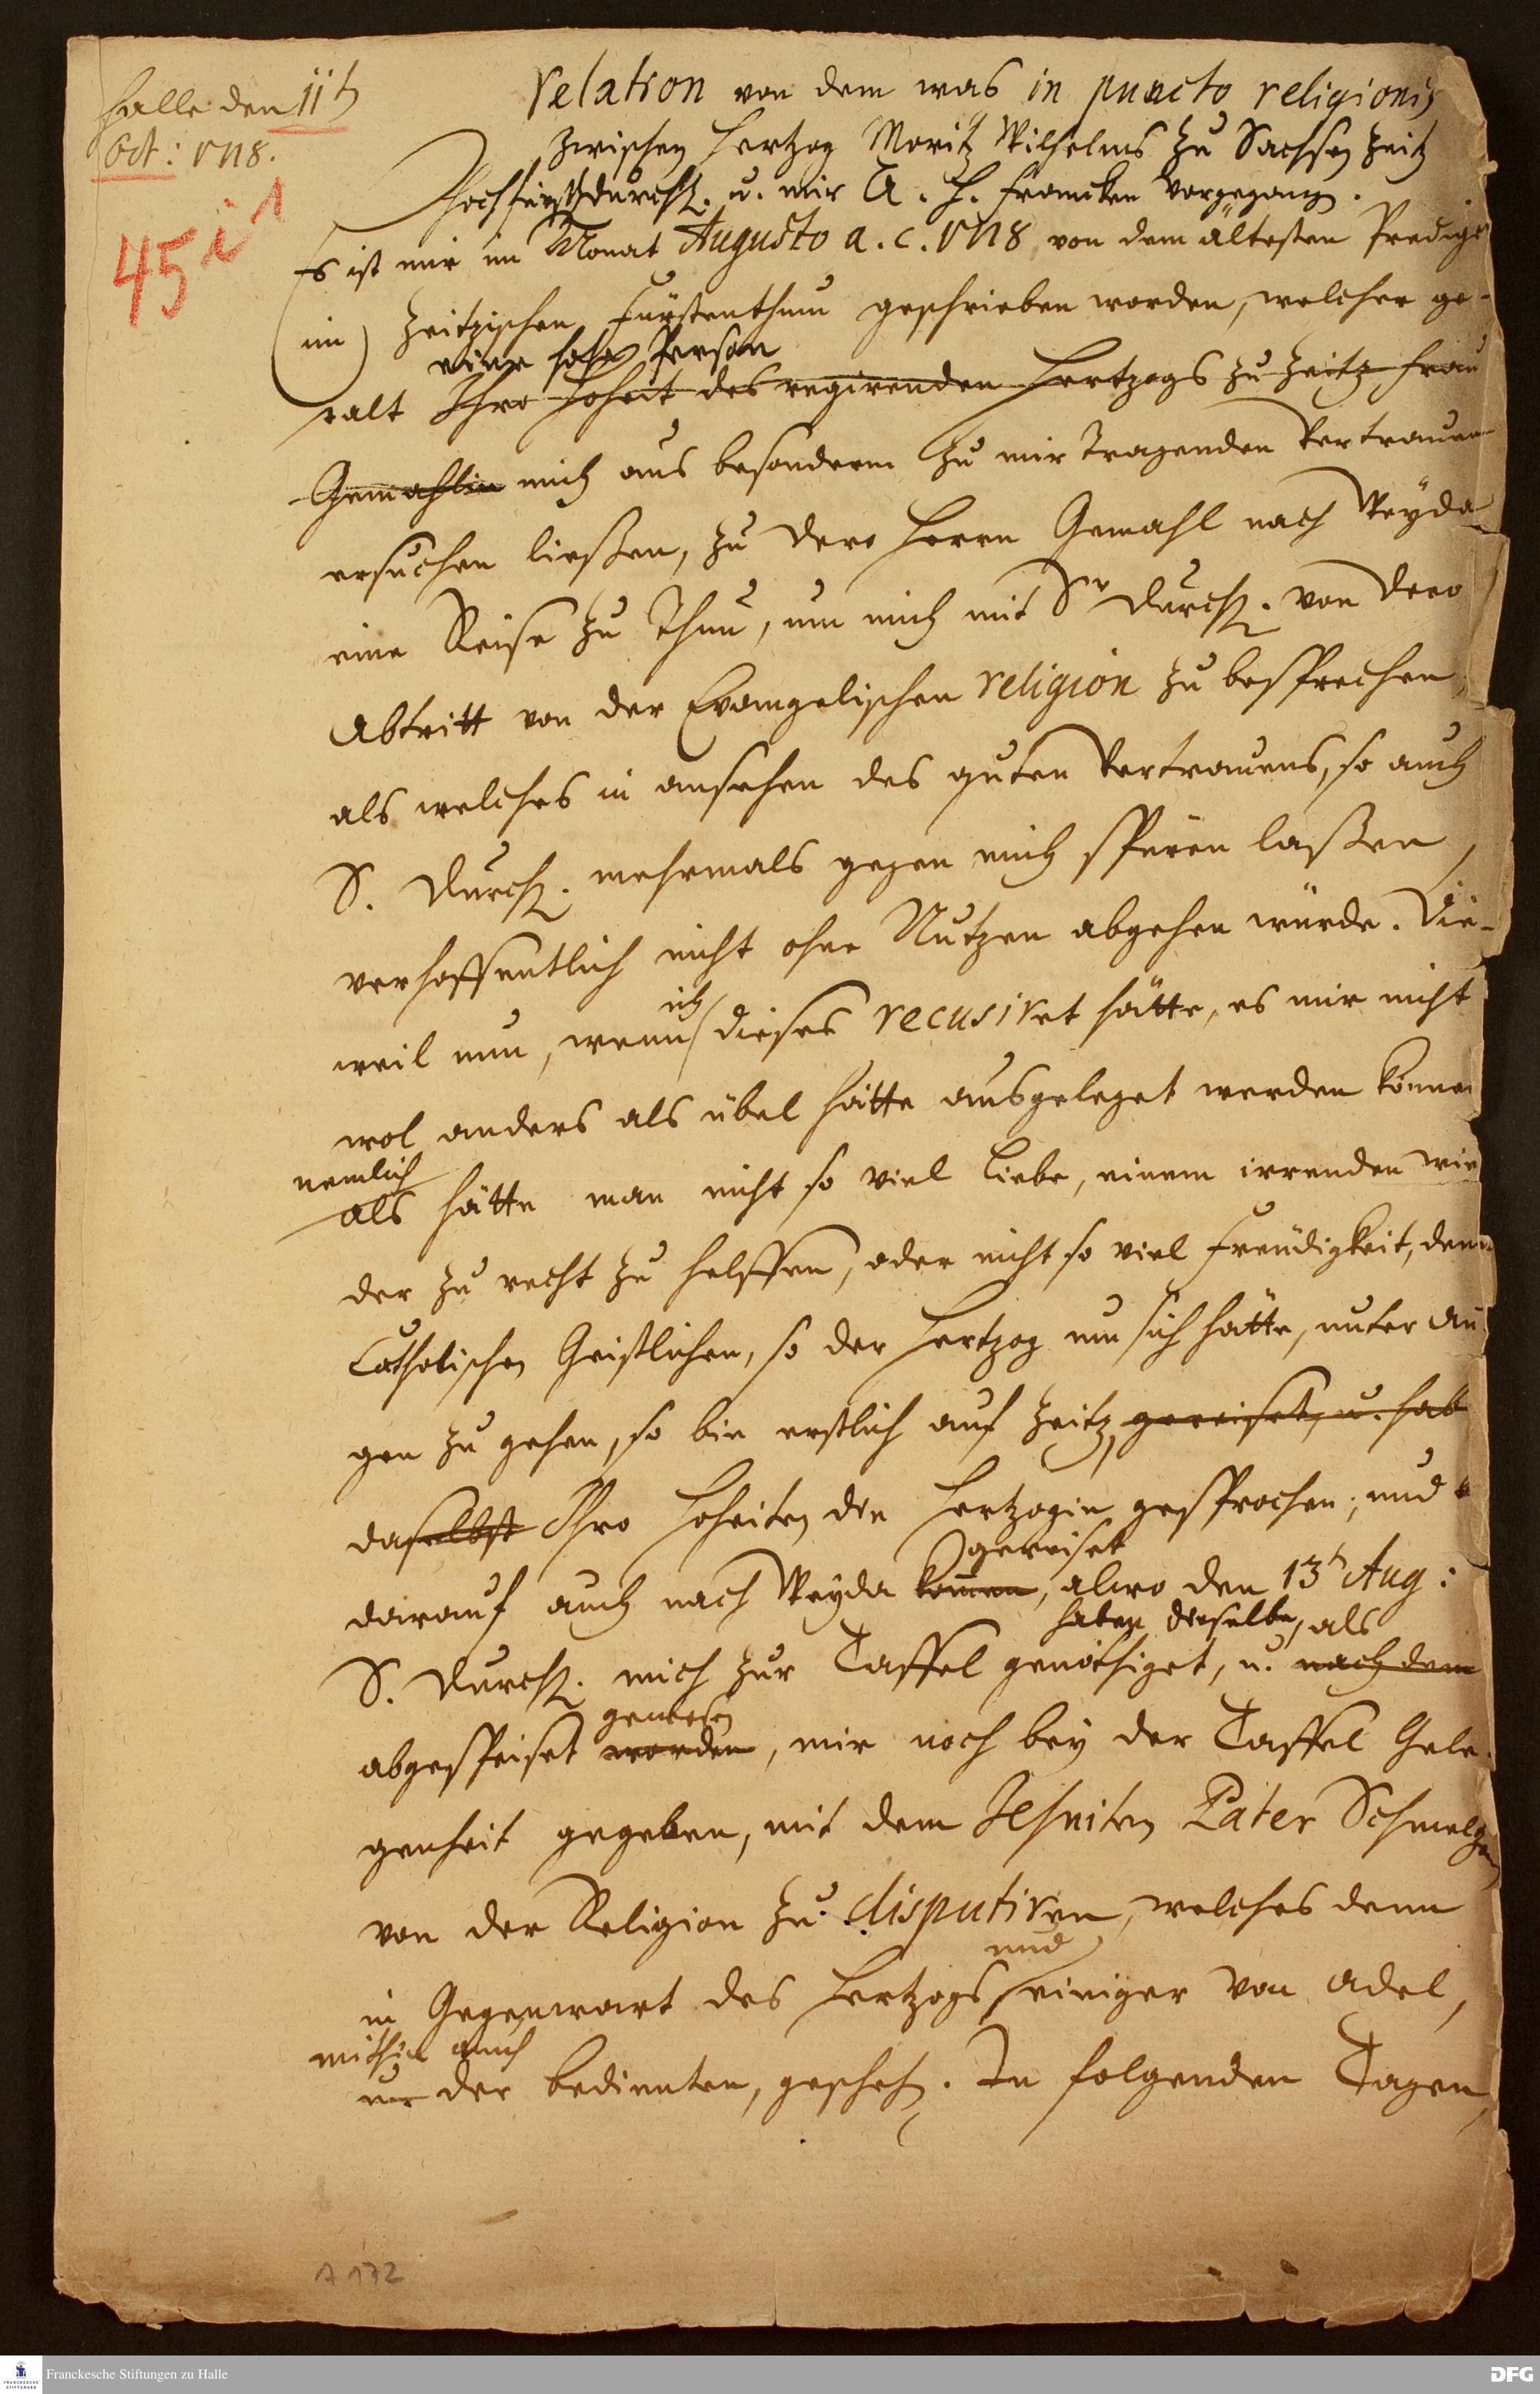 Halle den 11t
Oct: 1718.
45 i 1
Relation von dem was in puncto religionis
zwischen Hertzog Moritz Wilhelms zu Sachsen Zeitz
Hochfürstl. Durchl. u. mir A. H. Francken vorgegangen.
Es ist mir im Monat Augusto a. c. 1718 von dem ältesten Prediger
im Zeitzischen Fürstenthum geschrieben worden, welcher ge-
eine hohe Person
stalt Ihro Hoheit des regirenden Hertzogs zu Zeitz Frau
Gemahlin mich aus besonderm zu mir tragenden Vertrauen
ersuchen ließen, zu dero Herrn Gemahl nach Weyda
eine Reise zu thun, um mich mit Sr Durchl. von dero
Abtritt von der Evangelischen religion zu besprechen,
als welches in ansehen des guten Vertrauens, so auch
S. Durchl. mehrmals gegen mich spüren laßen,
verhoffentlich nicht ohne Nutzen abgehen würde. Die-
ich
weil nun, wenn dieses recusiret hätte, es mir nicht
wol anders als übel hätte ausgeleget werden können
nemlich
als hätte man nicht so viel Liebe, einem irrenden wie
der zu recht zu helffen, oder nicht so viel Freudigkeit, denen
Catholischen Geistlichen, so der Hertzog um sich hätte, unter Au
gen zu gehen, so bin erstlich auf Zeitz gereiset, u. hab
daselbst Ihro Hoheiten die Hertzogin gesprochen, und
gereiset
darauf auch nach Weyda kommen, alwo den 13t Aug:
haben dieselbe, als
S. Durchl. mich zur Taffel genöthiget, u. nach dem
gewesen
abgespeiset worden, mir noch bey der Taffel Gele-
genheit gegeben, mit dem Jesuiten Pater Schmelzer
von der Religion zu disputiren, welches denn
und
in Gegenwart des Hertzogs einiger von Adel,
mithin auch
u. der bedienten, geschehen. In folgenden Tagen,
A 172
Franckesche Stiftungen zu Halle
FRANCKESCHE STIFTUNGEN
DFG